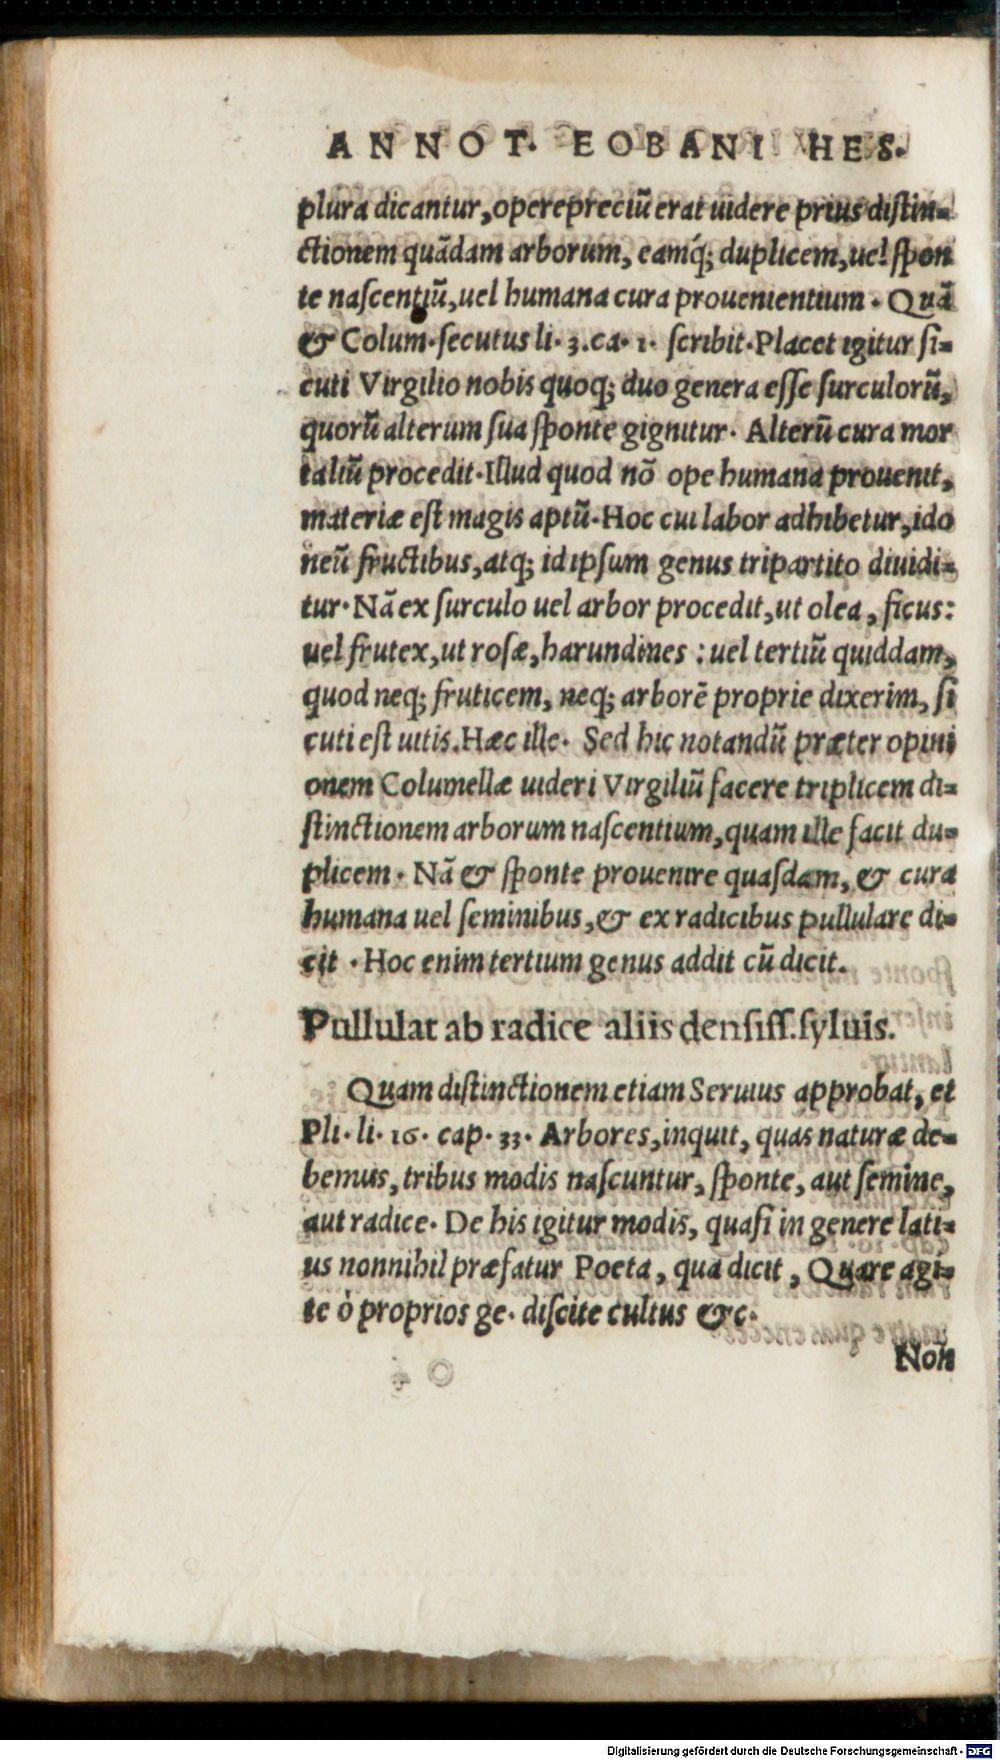 ANNOT. EOBANI HES.
plura dicantur, operepreciũ erat uidere prius distin-
ctionem quãdam arborum, eamq́; duplicem, uel spon
te nascentiũ, uel humana cura prouenientium. Quã
& Colum. secutus li. 3. ca. 1. scribit. Placet igitur si-
cuti Virgilio nobis quoq; duo genera esse surculorũ,
quorũ alterum sua sponte gignitur. Alterũ cura mor
taliũ procedit. Illud quod nõ ope humana prouenit,
materiæ est magis aptũ. Hoc cui labor adhibetur, ido
neũ fructibus, atq; id ipsum genus tripartito diuidi-
tur. Nã ex surculo uel arbor procedit, ut olea, ficus:
uel frutex, ut rosæ, harundines: uel tertiũ quiddam,
quod neq; fruticem, neq; arborẽ proprie dixerim, si
cuti est uitis. Hæc ille. Sed hic notandũ præter opini
onem Columellæ uideri Virgiliũ facere triplicem di-
stinctionem arborum nascentium, quam ille facit du-
plicem. Nã & sponte prouenire quasdam, & cura
humana uel seminibus, & ex radicibus pullulare di-
cit. Hoc enim tertium genus addit cũ dicit.
Pullulat ab radice aliis densiss. syluis.
Quam distinctionem etiam Seruius approbat, et
Pli. li. 16. cap. 33. Arbores, inquit, quas naturæ de-
bemus, tribus modis nascuntur, sponte, aut semine,
aut radice. De his igitur modis, quasi in genere lati-
us nonnihil præfatur Poeta, qua dicit, Quare agi-
te ò proprios ge. discite cultus &c.
Non
Digitalisierung gefördert durch die Deutsche Forschungsgemeinschaft - DFG